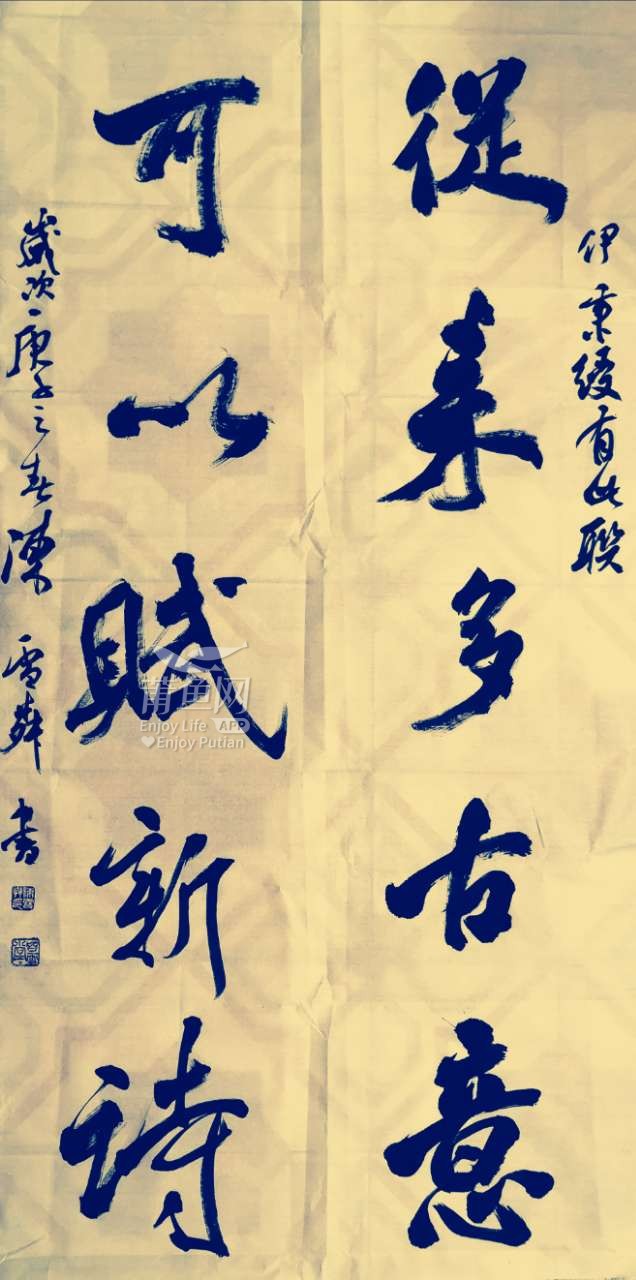 伊秉綬有此聯
從來多古意
可以賦新詩
歲次庚子之春陳雪書
莆鱼网
Enjoy Life APP
❤Enjoy Putian